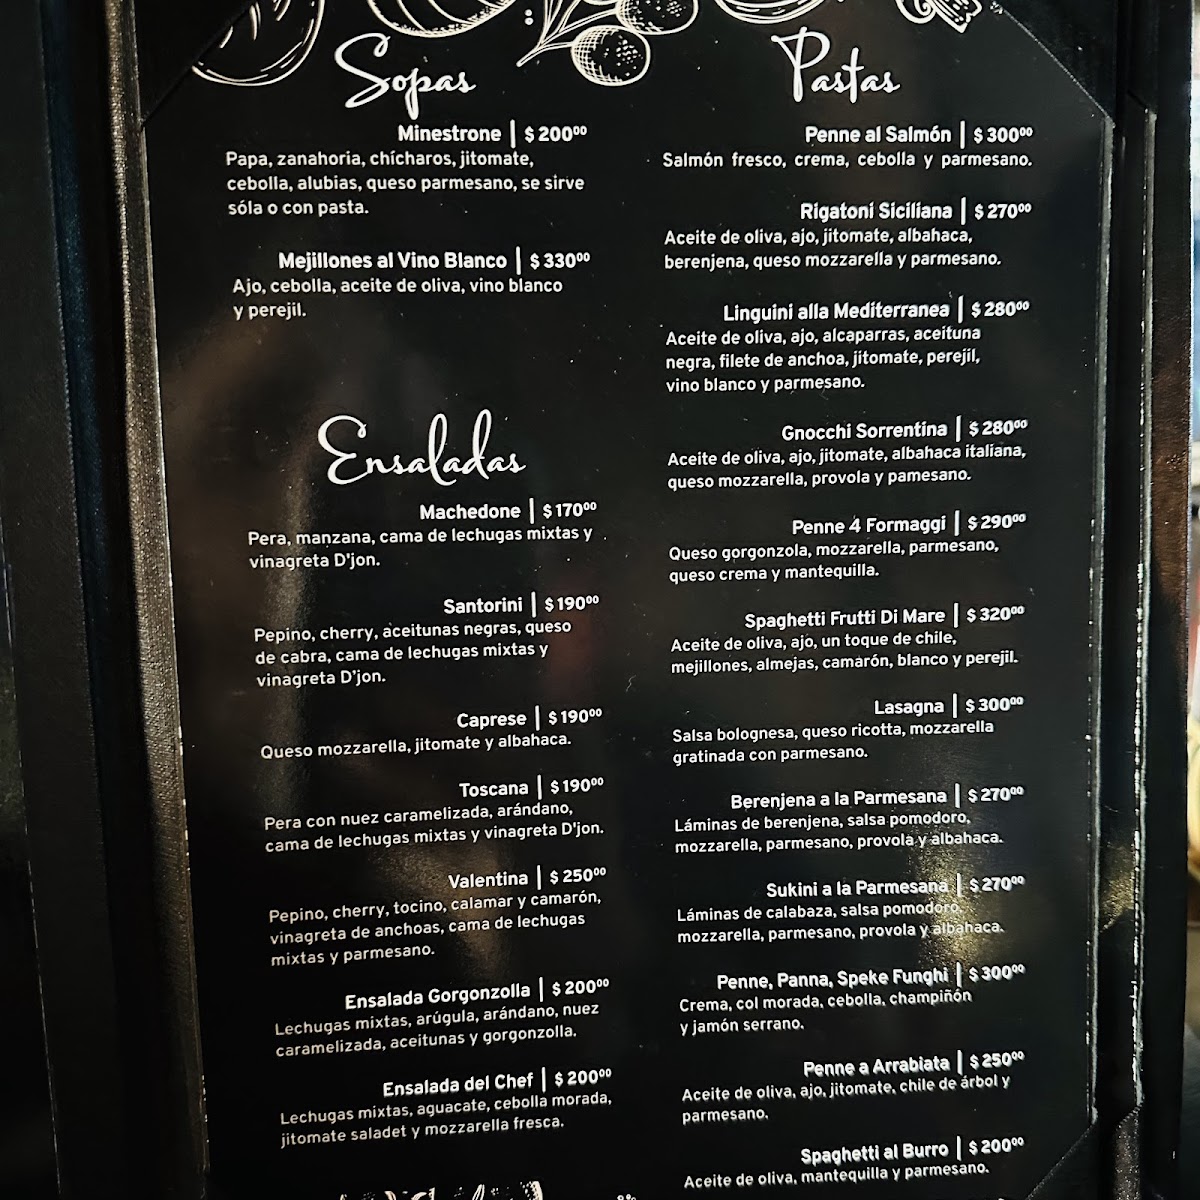 Sopas
Minestrone | $ 200⁰⁰
Papa, zanahoria, chícharos, jitomate,
cebolla, alubias, queso parmesano, se sirve
sóla o con pasta.
Mejillones al Vino Blanco | $ 330⁰⁰
Ajo, cebolla, aceite de oliva, vino blanco
y perejil.
Ensaladas
Machedone | $ 170⁰⁰
Pera, manzana, cama de lechugas mixtas y
vinagreta D'jon.
Santorini | $ 190⁰⁰
Pepino, cherry, aceitunas negras, queso
de cabra, cama de lechugas mixtas y
vinagreta D'jon.
Caprese | $ 190⁰⁰
Queso mozzarella, jitomate y albahaca.
Toscana | $ 190⁰⁰
Pera con nuez caramelizada, arándano,
cama de lechugas mixtas y vinagreta D'jon.
Valentina | $ 250⁰⁰
Pepino, cherry, tocino, calamar y camarón,
vinagreta de anchoas, cama de lechugas
mixtas y parmesano.
Ensalada Gorgonzolla | $ 200⁰⁰
Lechugas mixtas, arúgula, arándano, nuez
caramelizada, aceitunas y gorgonzolla.
Ensalada del Chef | $ 200⁰⁰
Lechugas mixtas, aguacate, cebolla morada,
jitomate saladet y mozzarella fresca.
Pastas
Penne al Salmón | $ 300⁰⁰
Salmón fresco, crema, cebolla y parmesano.
Rigatoni Siciliana | $ 270⁰⁰
Aceite de oliva, ajo, jitomate, albahaca,
berenjena, queso mozzarella y parmesano.
Linguini alla Mediterranea | $ 280⁰⁰
Aceite de oliva, ajo, alcaparras, aceituna
negra, filete de anchoa, jitomate, perejil,
vino blanco y parmesano.
Gnocchi Sorrentina | $ 280⁰⁰
Aceite de oliva, ajo, jitomate, albahaca italiana,
queso mozzarella, provola y pamesano.
Penne 4 Formaggi | $ 290⁰⁰
Queso gorgonzola, mozzarella, parmesano,
queso crema y mantequilla.
Spaghetti Frutti Di Mare | $ 320⁰⁰
Aceite de oliva, ajo, un toque de chile,
mejillones, almejas, camarón, blanco y perejil.
Lasagna | $ 300⁰⁰
Salsa bolognesa, queso ricotta, mozzarella
gratinada con parmesano.
Berenjena a la Parmesana | $ 270⁰⁰
Láminas de berenjena, salsa pomodoro,
mozzarella, parmesano, provola y albahaca.
Sukini a la Parmesana | $ 270⁰⁰
Láminas de calabaza, salsa pomodoro,
mozzarella, parmesano, provola y albahaca.
Penne, Panna, Speke Funghi | $ 300⁰⁰
Crema, col morada, cebolla, champiñón
y jamón serrano.
Penne a Arrabiata | $ 250⁰⁰
Aceite de oliva, ajo, jitomate, chile de árbol y
parmesano.
Spaghetti al Burro | $ 200⁰⁰
Aceite de oliva, mantequilla y parmesano.